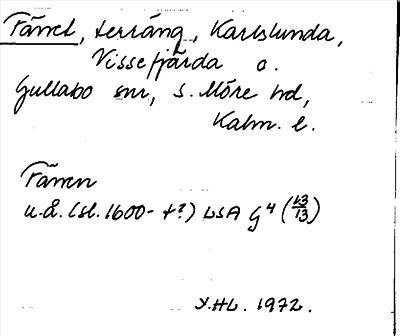 Färrel, terräng, Karlslunda,
Vissefjärda o.
Gullabo snr, S. Möre hd,
Kalm. l.
Färren
u.å. (sl. 1600- t?) LSA G4 (13/13)
Y.HL. 1972.